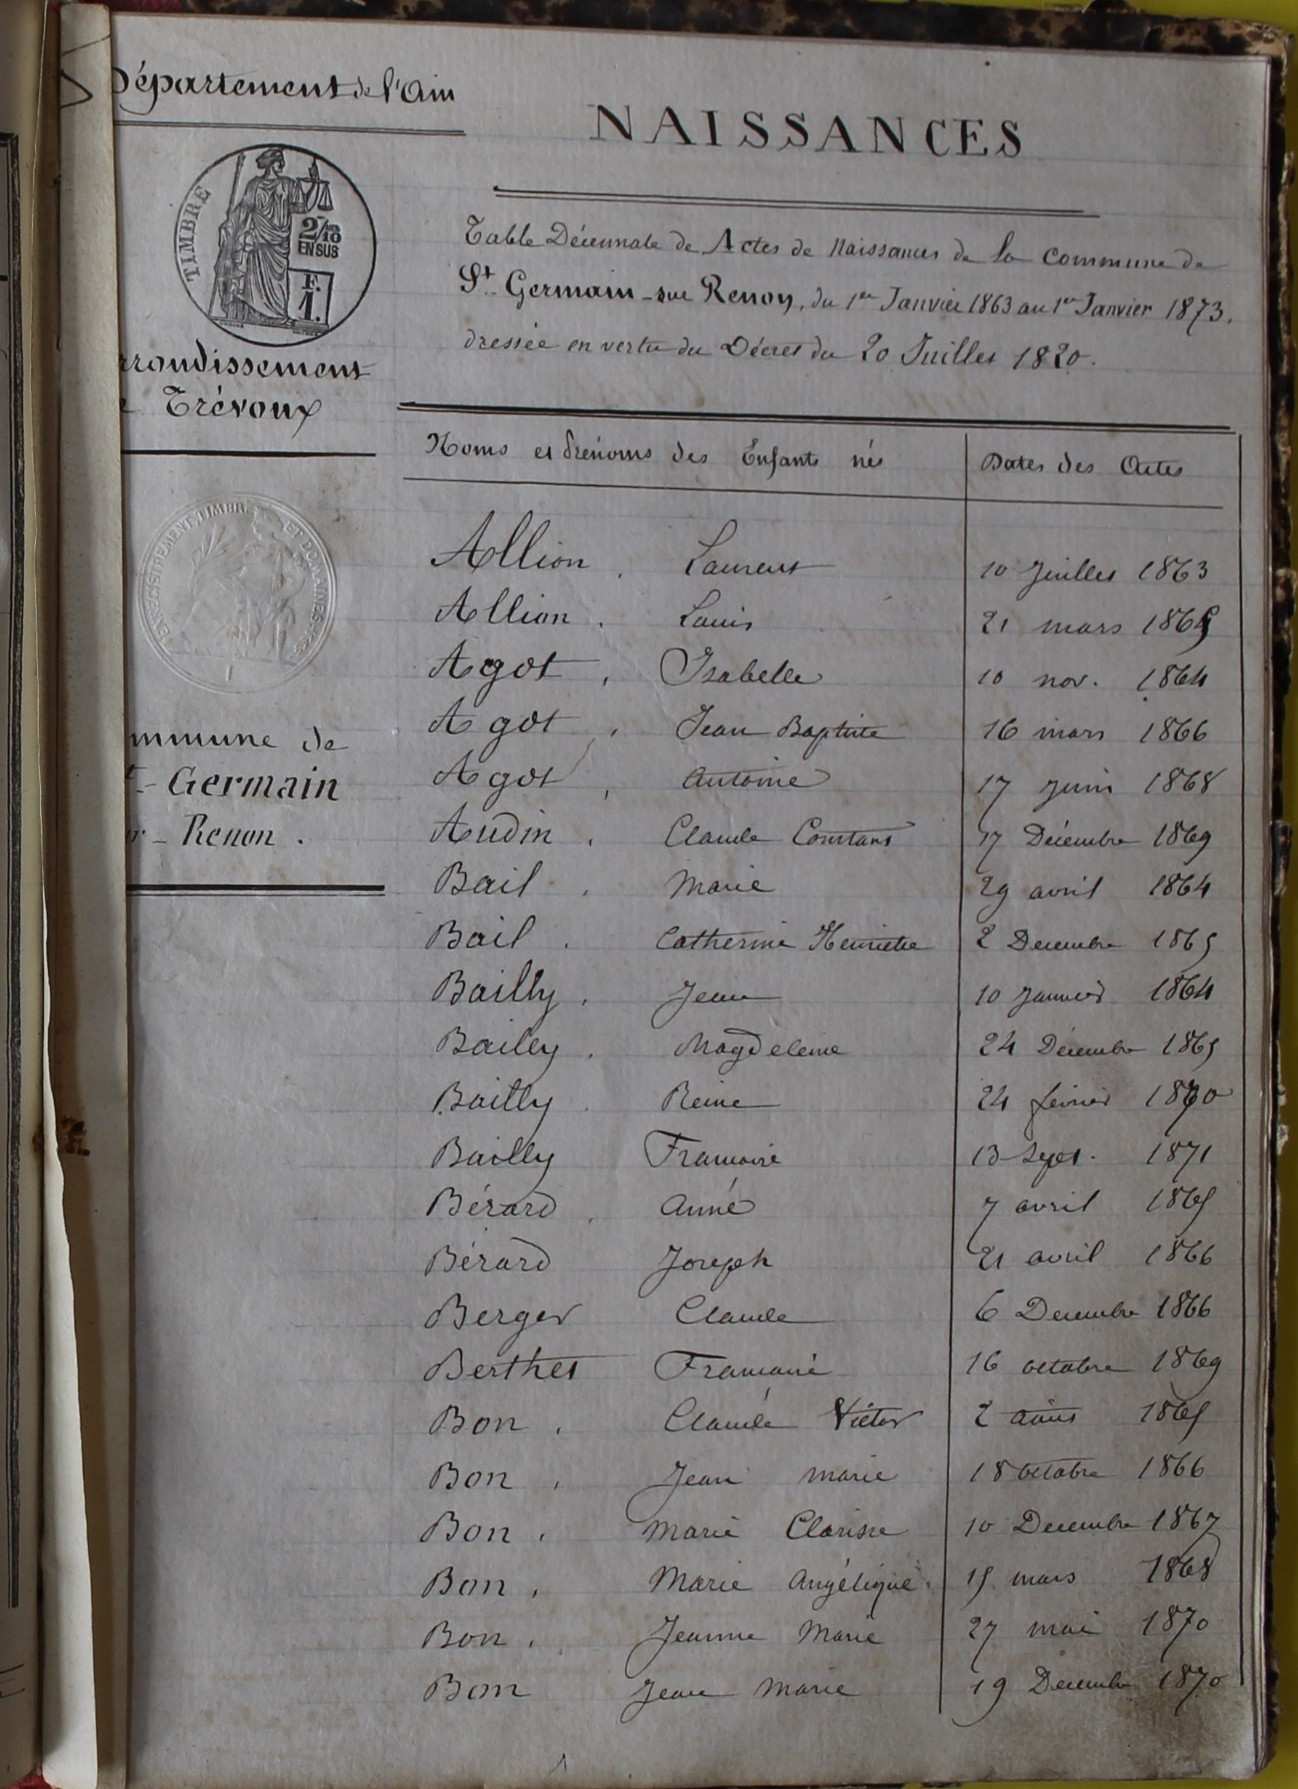 Département de l'Ain
NAISSANCES
TIMBRE
2/10
EN SUS
F.
1.
Table Décennale de Actes de Naissances de la commune de
St Germain-sur Renon, du 1er Janvier 1863 au 1er Janvier 1873.
dressée en vertu du Décret du 20 Juillet 1820.
rrondissement
e Trévoux
Noms et Prénoms des Enfants nés Dates des Actes
ENREGISTREMENT TIMBRE ET DOMAINES
mmune de
t- Germain
r- Renon.
Allion. Laurent 10 Juillet 1863
Allion. Louis 21 mars 1865
Agot. Isabelle 10 nov. 1864
Agot. Jean Baptiste 16 mars 1866
Agot. Antoine 17 Juin 1868
Audin. Claude Constant 17 Décembre 1869
Bail. Marie 29 avril 1864
Bail. Catherine Henriette 2 Decembre 1865
Bailly. Jean 10 Janvier 1864
Bailly. Magdeleine 24 Décembre 1865
Bailly. Reine 24 février 1870
Bailly Francoise 13 Sept. 1871
Bérard. Anne 7 avril 1865
Bérard Joseph 21 avril 1866
Berger Claude 6 Decembre 1866
Berthet Francoise 16 octobre 1869
Bon. Claude Victor 2 août 1865
Bon. Jean Marie 18 octobre 1866
Bon. Marie Clarisse 10 Decembre 1867
Bon. Marie Angélique. 15 mars 1868
Bon. Jeanne Marie 27 mai 1870
Bon Jean Marie 19 Decembre 1870